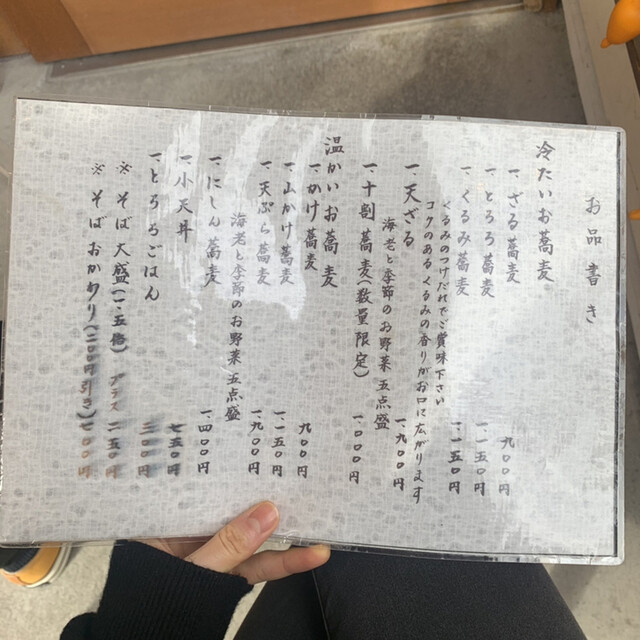 お品書き
冷たいお蕎麦
一ざる蕎麦 九〇〇円
一とろろ蕎麦 一一五〇円
一くるみ蕎麦 一一五〇円
くるみのつけだれでご賞味下さい
コクのあるくるみの香りがお口に広がります
一天ざる 一、九〇〇円
海老と季節のお野菜五点盛
一十割蕎麦(数量限定) 一、〇〇〇円
温かいお蕎麦
一かけ蕎麦 九〇〇円
一山かけ蕎麦 一一五〇円
一天ぷら蕎麦 一、九〇〇円
海老と季節のお野菜五点盛
一にしん蕎麦 一、四〇〇円
一小天丼 七五〇円
一とろろごはん 三〇〇円
※そば大盛(一・五倍) プラス 二五〇円
※そばおかわり(二〇〇円引き)